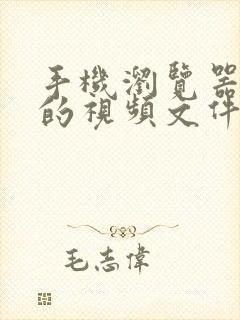 手機瀏覽器
的視頻文件
毛志偉